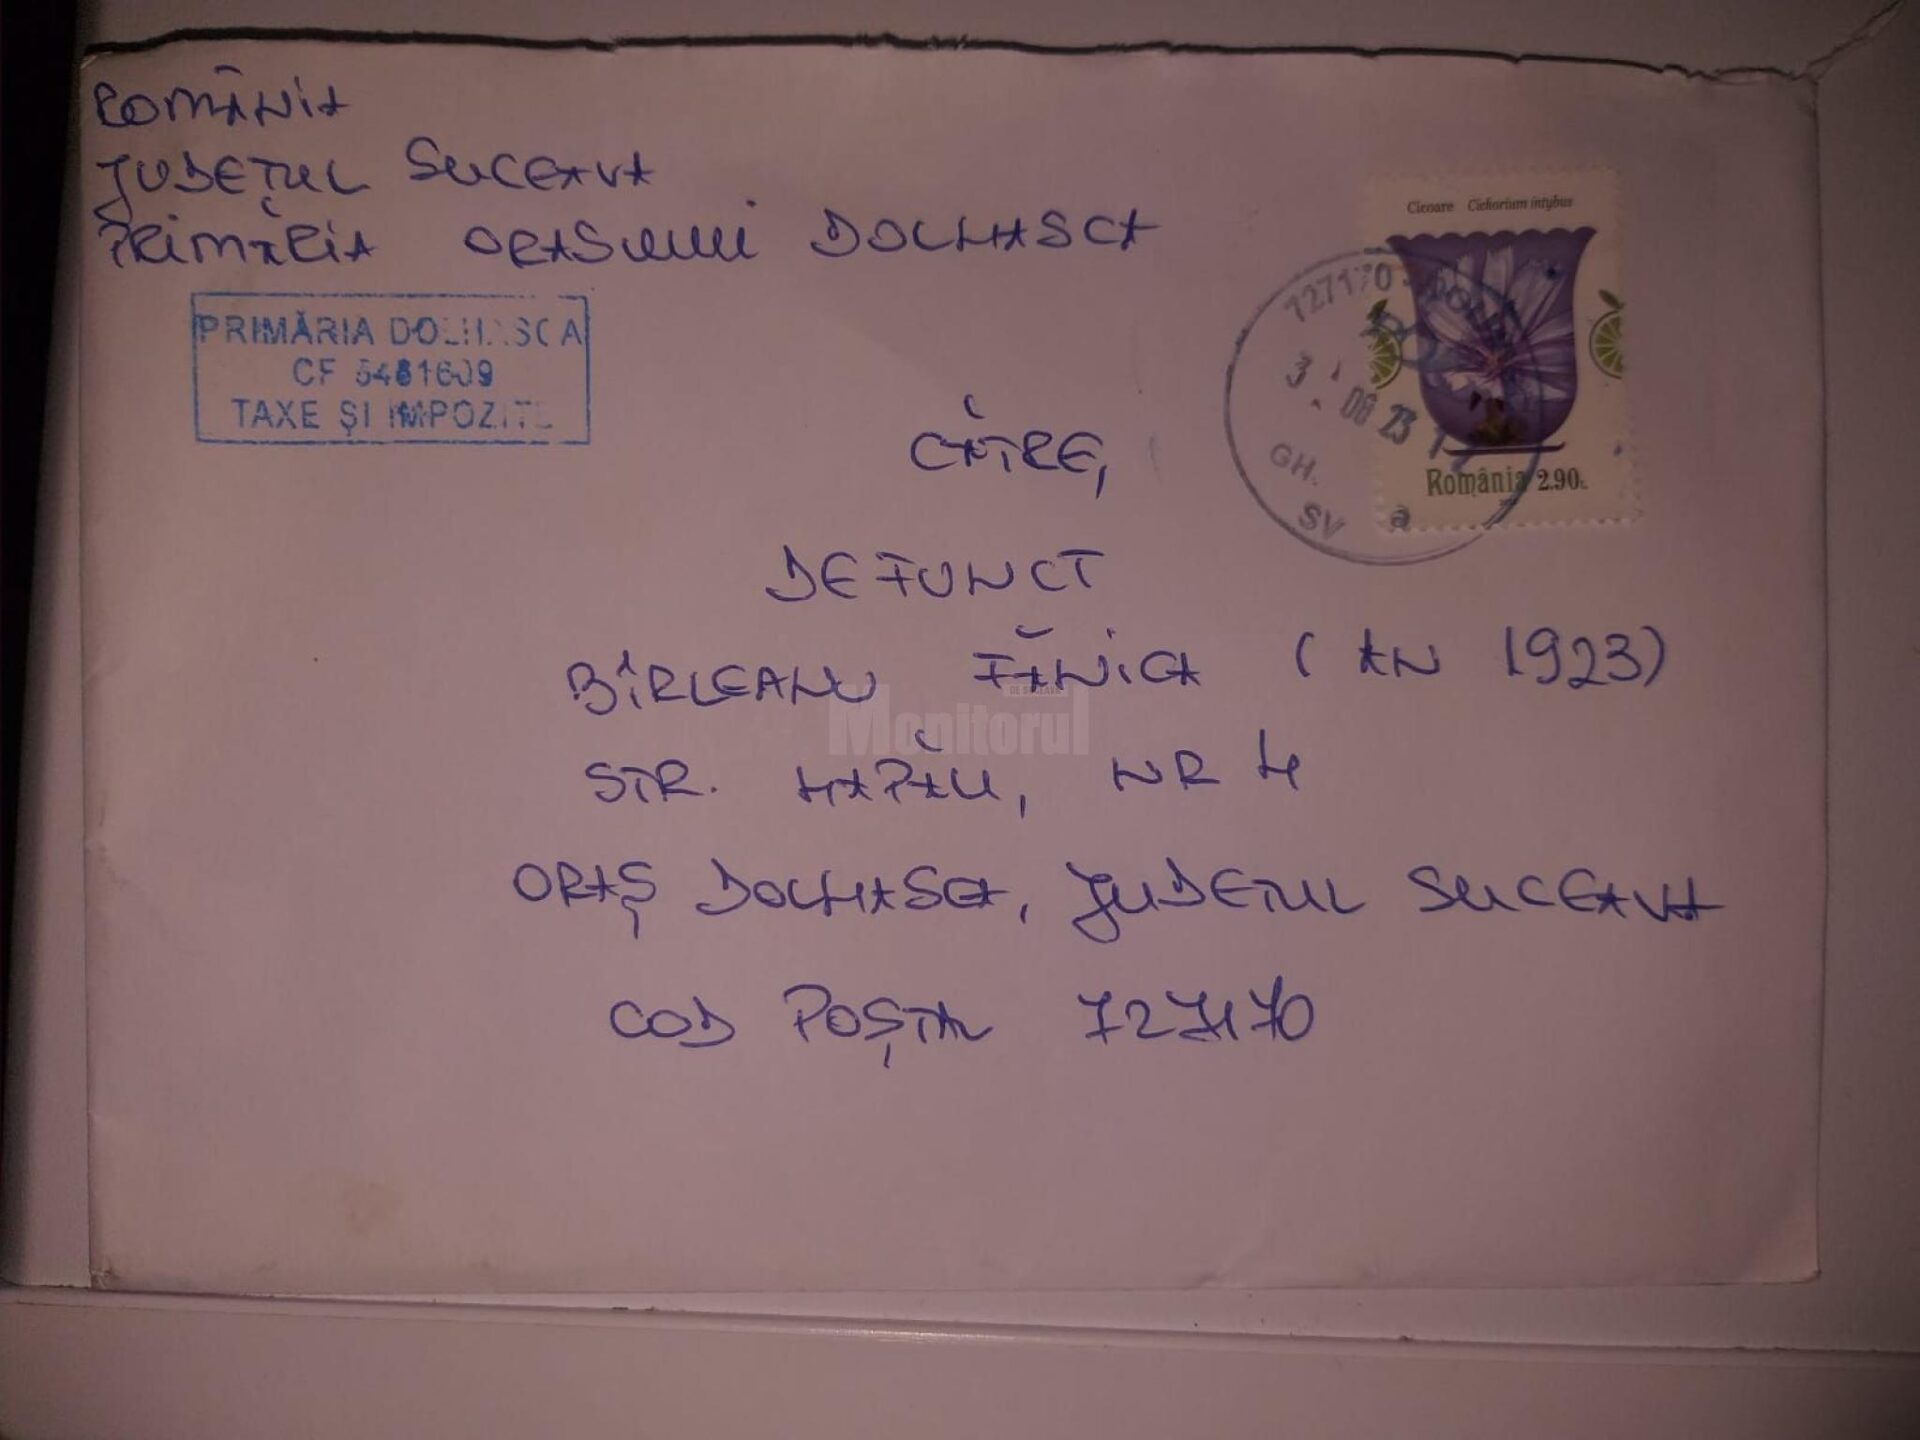 ROMÂNIA
JUDEȚUL SUCEAVA
PRIMĂRIA ORASULUI DOLHASCA
PRIMĂRIA DOLHASCA
CF 5481609
TAXE ȘI IMPOZITE
Cicoare Cichorium intybus
727170
3 08 23
GH.
SV
a
România 2.90L
CĂTRE,
DEFUNCT
BÎRLEANU FĂNICA (AN 1923)
DE SUCEAVA
Monitorul
STR. HAPĂU, NR 4
ORAȘ DOLHASCA, JUDETUL SUCEAVA
COD POȘTAL 727170